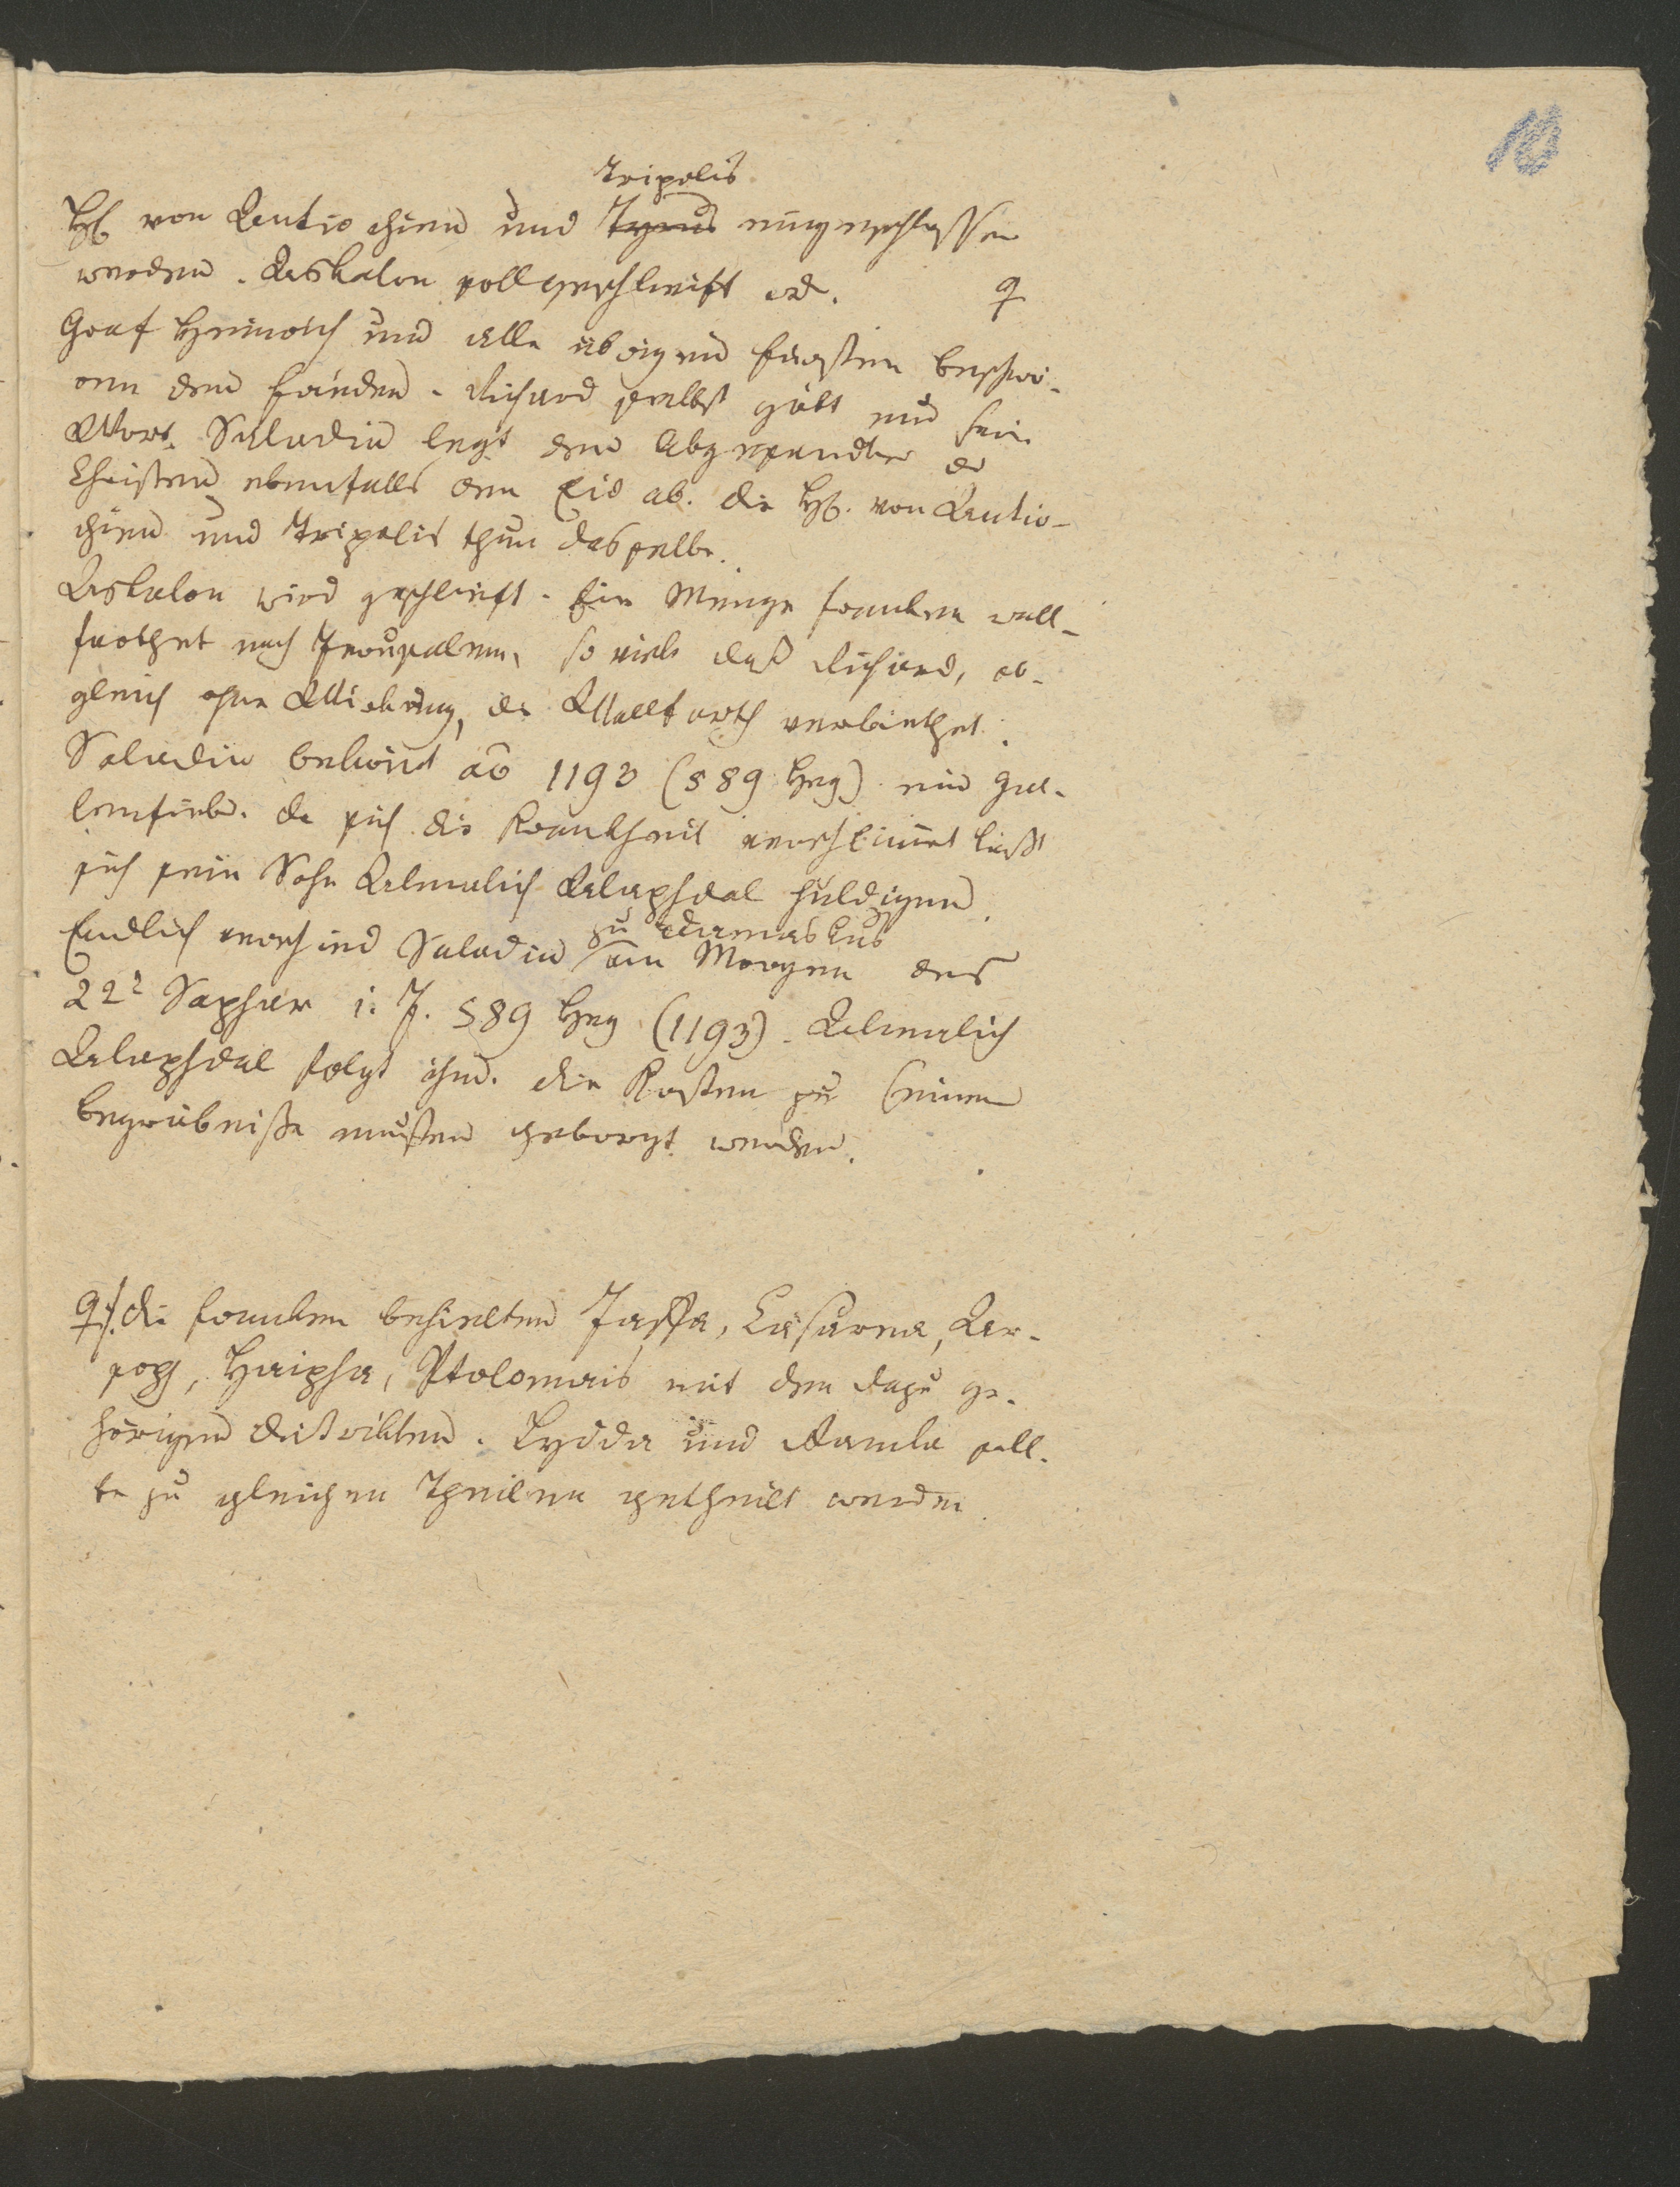 10
Tripolis
Hℓ. von Antiochien und Tyrus eingeschlossen
werden. Askalon soll geschleift wd. ♀
Graf Heinrich und alle übrigen Fürsten beschwö-
ren den Frieden. Richard selbst gibt nur sein
Wort. Saladin legt den Abgesandten der
Christen ebenfalls den Eid ab. Die Hℓ. von Antio-
chien und Tripolis thun dasselbe.
Askalon wird geschleift. Eine Menge Franken wall-
farthet nach Jerusalem, so viele daß Richard, ob-
gleich ohne Wirkung, die Wallfarth verbiethet.
Saladin bekömt aō 1193 (589 Heg) ein Gal-
lenfieber. Da sich die Krankheit verschlimert läßt
sich sein Sohn Almalich Alaphdal huldigen.
zu Damaskus
Endlich verschied Saladin am Morgen des
22t Saphar i. J. 589 Heg (1193). Almalich
Alaphdal folgt ihm. Die Kosten zu seinem
Begräbniße mußten geborgt werden.
♀/. Die Franken behielten Jaffa, Cäsarea, Ar-
soph, Haipha, Ptolomais mit den dazu ge-
hörigen Distrikten. Lydda und Ramla soll-
te zu gleichen Theilen getheilt werden.